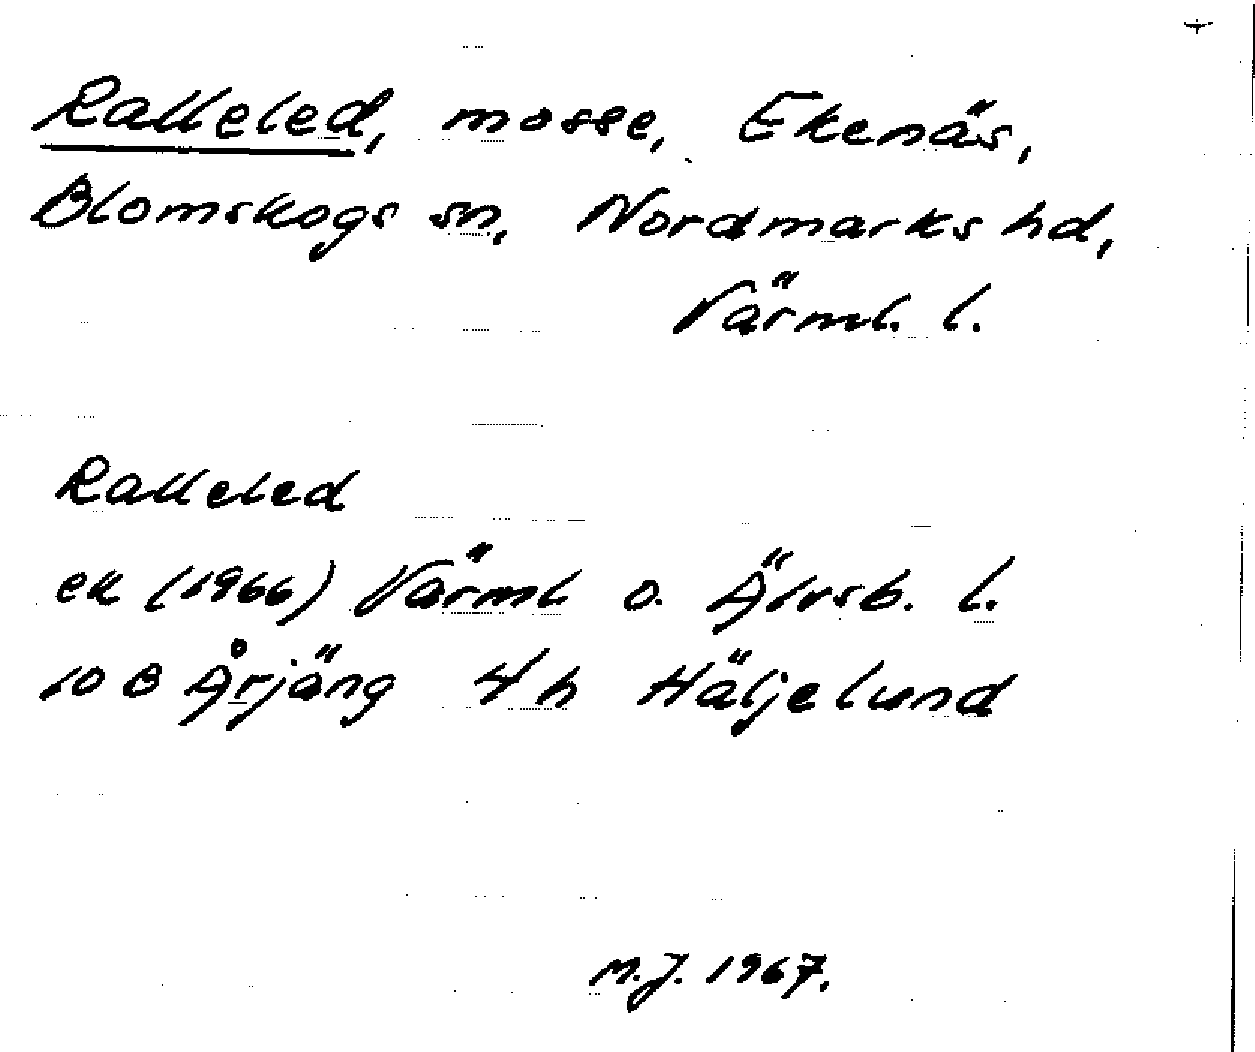 Ralleled, mosse, Ekenäs,
Blomskogs sn, Nordmarks hd,
Värml. l.
Ralleled
ek (1966) Värml o. Älvsb. l.
10 B Årjäng 4 h Häljelund
M.J. 1967.